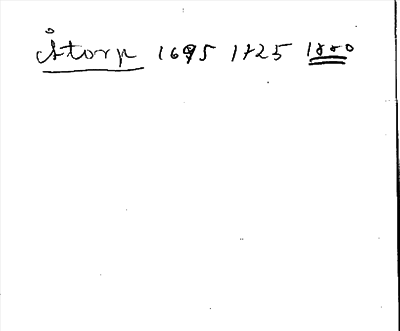 Åtorp 1695 1725 1880